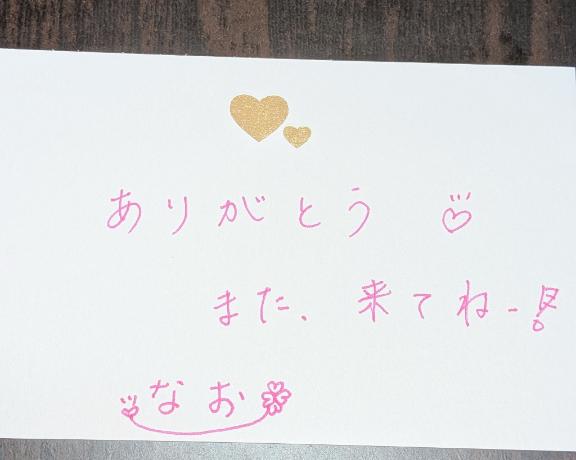 ありがとう♡
また、来てねー!
なお